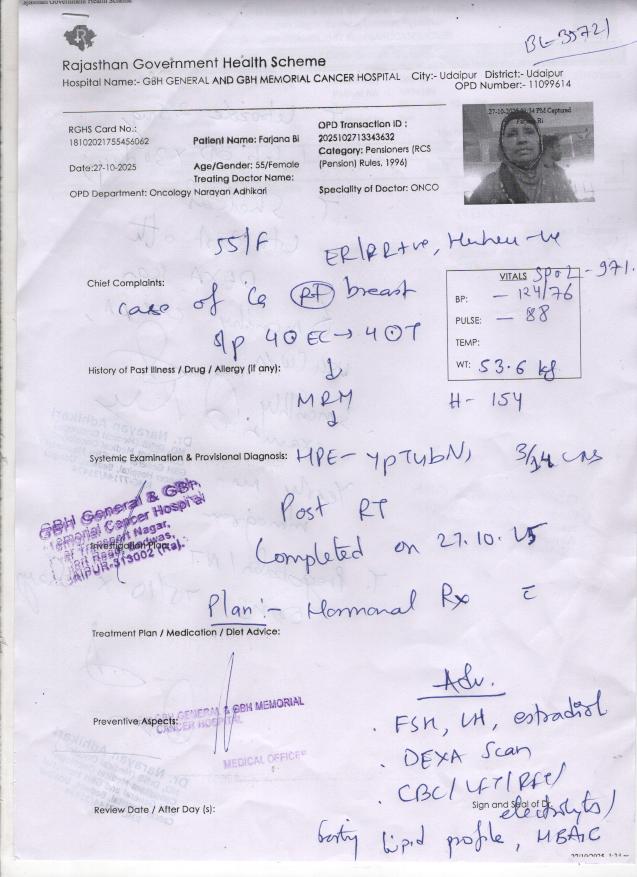 Rajasthan Government Health Scheme
BL-35721
Rajasthan Government Health Scheme
Hospital Name:- GBH GENERAL AND GBH MEMORIAL CANCER HOSPITAL City:- Udaipur District:- Udaipur
OPD Number:- 11099614
RGHS Card No.:
18102021755456062
Patient Name: Farjana Bi
OPD Transaction ID :
2025102713343632
Category: Pensioners (RCS
(Pension) Rules, 1996)
27-10-2025 01:34 PM Captured
Farjana Bi
Date:27-10-2025
Age/Gender: 55/Female
Treating Doctor Name:
OPD Department: Oncology Narayan Adhikari
Speciality of Doctor: ONCO
55/F ER/PR+ve, Her2neu -ve
Chief Complaints:
case of Ca RT breast
S/P 4 EC → 4 T
VITALS SPO2 - 97%
BP: - 124/76
PULSE: - 88
TEMP:
WT: 53.6 kg
H - 154
History of Past Illness / Drug / Allergy (if any):
↓
MRM
↓
Systemic Examination & Provisional Diagnosis: HPE- ypT4bN1 3/14 LNS
GBH General & GBH
Memorial Cancer Hospital
Transport Nagar,
UDAIPUR-313002 (Raj.)
Investigation Plan:
Post RT
Completed on 27.10.25
Plan:- Hormonal Rx c̄
Treatment Plan / Medication / Diet Advice:
Adv.
Preventive Aspects:
GBH GENERAL & GBH MEMORIAL
CANCER HOSPITAL
MEDICAL OFFICER
. FSH, LH, estradiol
. DEXA Scan
. CBC/LFT/RFT/
Sign and Seal of Dr.
electrolytes/
Review Date / After Day (s):
fasting lipid profile, HBA1C